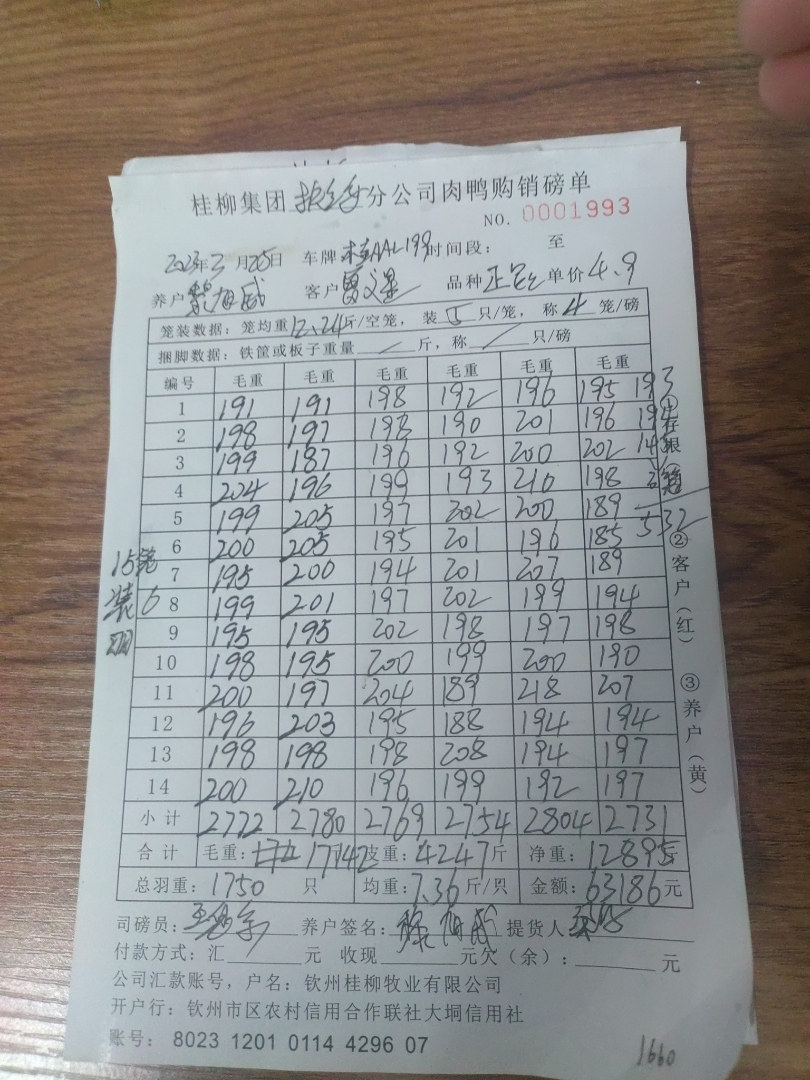 桂柳集团 分公司肉鸭购销磅单
NO. 0001993
2023年3月25日 车牌 AAL199 时间段： 至
养户 客户 品种 单价 4.9
笼装数据：笼均重12.24斤/空笼，装5只/笼，称4笼/磅
捆脚数据：铁筐或板子重量 / 斤，称 / 只/磅
编号 毛重 毛重 毛重 毛重 毛重 毛重
1 191 191 198 192 196 195 193
2 198 197 198 190 201 196 194
3 199 187 196 192 200 202
4 204 196 199 193 210 198
5 199 205 197 202 200 189 532
6 200 205 195 201 196 185
7 195 200 194 201 207 189
8 199 201 197 202 199 194
9 195 195 202 198 197 198
10 198 195 200 199 200 190
11 200 197 204 189 218 207
12 196 203 195 188 194 194
13 198 198 198 208 194 197
14 200 210 196 199 192 197
小计 2772 2780 2769 2754 2804 2731
合计 毛重： 17142 皮重：4247斤 净重：12895斤
总羽重：1750 只 均重：7.36斤/只 金额：63186元
司磅员： 养户签名： 提货人
付款方式：汇 元 收现 元欠（余）： 元
公司汇款账号，户名：钦州桂柳牧业有限公司
开户行：钦州市区农村信用合作联社大垌信用社
账号： 8023 1201 0114 4296 07
1660
15笼
装6
羽
①存根
②客户（红）
③养户（黄）